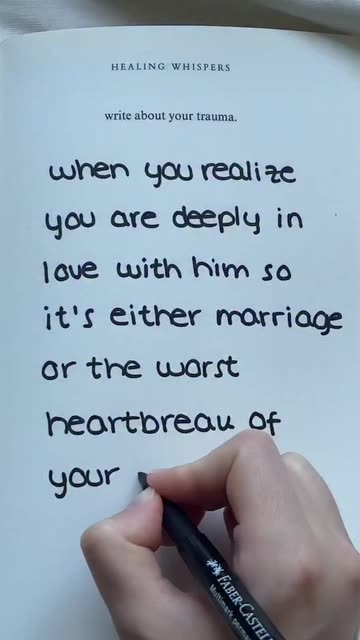 HEALING WHISPERS
write about your trauma.
when you realize
you are deeply in
love with him so
it's either marriage
or the worst
heartbreak of
your
FABER-CASTELL
Multimark perma